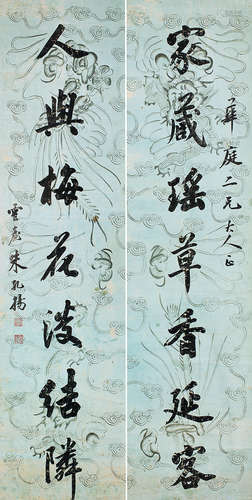 華庭二兄大人正
家藏瑶草香延客
人與梅花淡結隣
雲朱孔